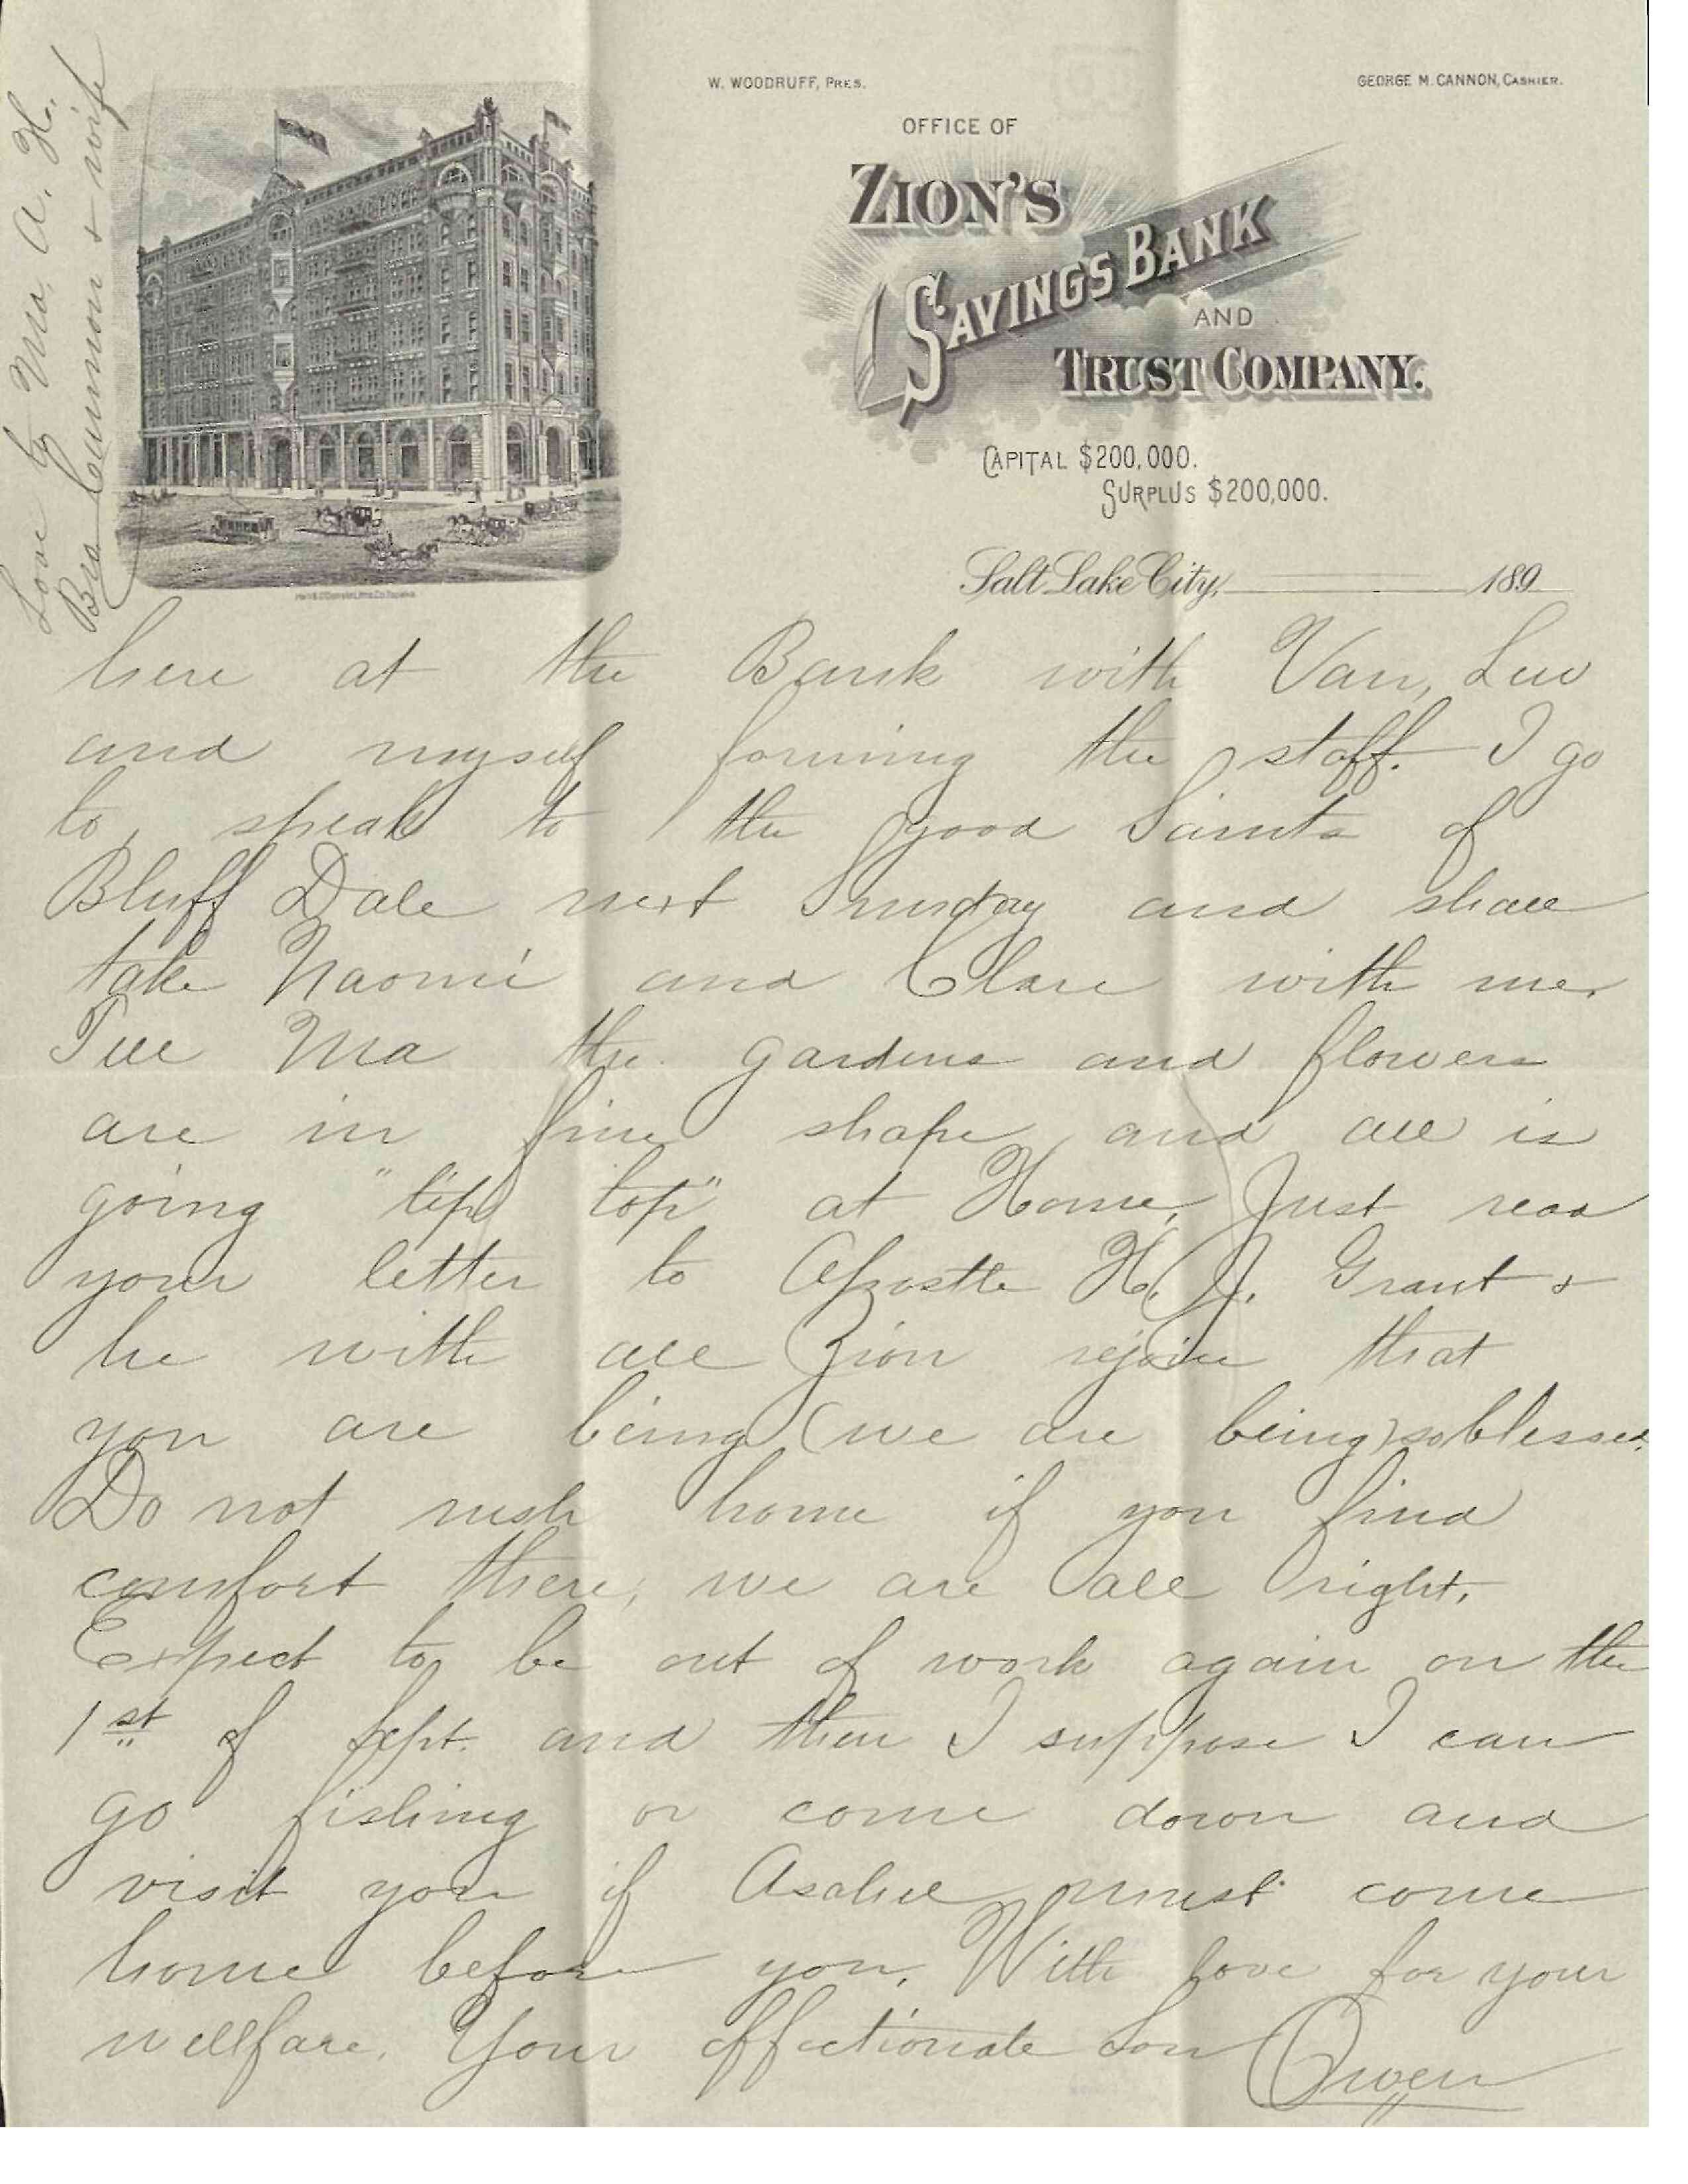 W. WOODRUFF, PRES.
GEORGE M. CANNON, CASHIER.
OFFICE OF
ZION'S
SAVINGS BANK
AND
TRUST COMPANY.
CAPITAL $200,000.
SURPLUS $200,000.
Salt Lake City, 189
Love to Ma, A. H.
Bro Cannon & wife
here at the Bank with Van, Lew
and myself forming the staff. I go
to speak to the good Saints of
Bluff Dale next Sunday and shall
take Naomi and Clare with me.
Tell Ma the gardens and flowers
are in fine shape and all is
going "tip top" at Home, Just read
your letter to Apostle H. J. Grant &
he with all Zion rejoice that
you are being (we are being) so blessed.
Do not rush home if you find
comfort there, we are all right.
Expect to be out of work again on the
1st of Sept. and then I suppose I can
go fishing or come down and
visit you if Asahel must come
home before you. With love for your
wellfare. Your affectionate Son Owen